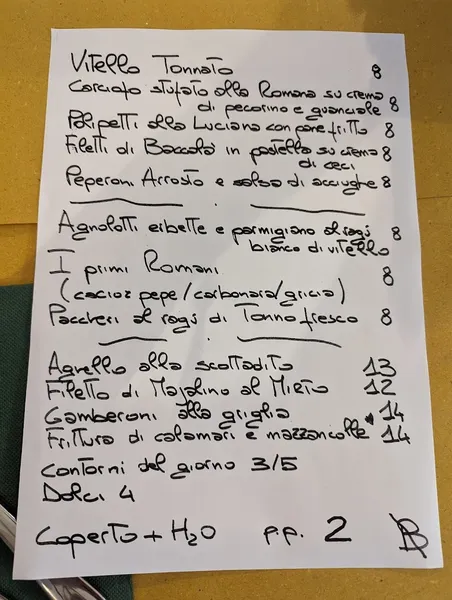 Vitello Tonnato 8
Carciofo stufato alla Romana su crema
di pecorino e guanciale 8
Polipetti alla Luciana con pane fritto 8
Filetti di Baccalà in pastella su crema 8
di ceci
Peperoni Arrosto e salsa di acciughe 8
Agnolotti erbette e parmigiano al ragù 8
bianco di vitello
I primi Romani 8
(cacio e pepe/carbonara/gricia)
Paccheri al ragù di Tonno fresco 8
Agnello alla scottadito 13
Filetto di Maialino al Mirto 12
Gamberoni alla griglia 14
Frittura di calamari e mazzancolle 14
Contorni del giorno 3/5
Dolci 4
Coperto + H2O p.p. 2